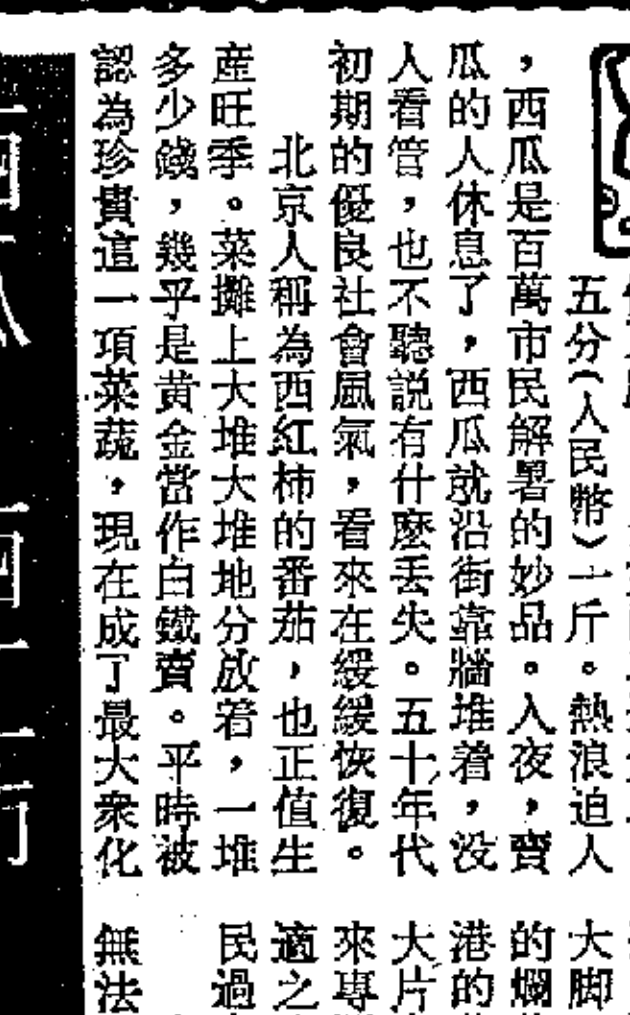 五分（人民幣）一斤。熱浪迫人
，西瓜是百萬市民解暑的妙品。入夜，賣
瓜的人休息了，西瓜就沿街靠牆堆着，没
人看管，也不聽説有什麽丢失。五十年代
初期的優良社會風氣，看來在緩緩恢復。
北京人稱為西紅柿的番茄，也正值生
産旺季。菜攤上大堆大堆地分放着，一堆
多少錢，幾乎是黄金當作白鐵賣。平時被
認為珍貴這一項菜蔬，現在成了最大衆化
大脚
的爛
港的
大片
來專
適之
民過
無法